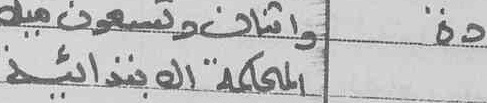 دة واثنان وتسعون ميلا
المحكمة الابتدائية